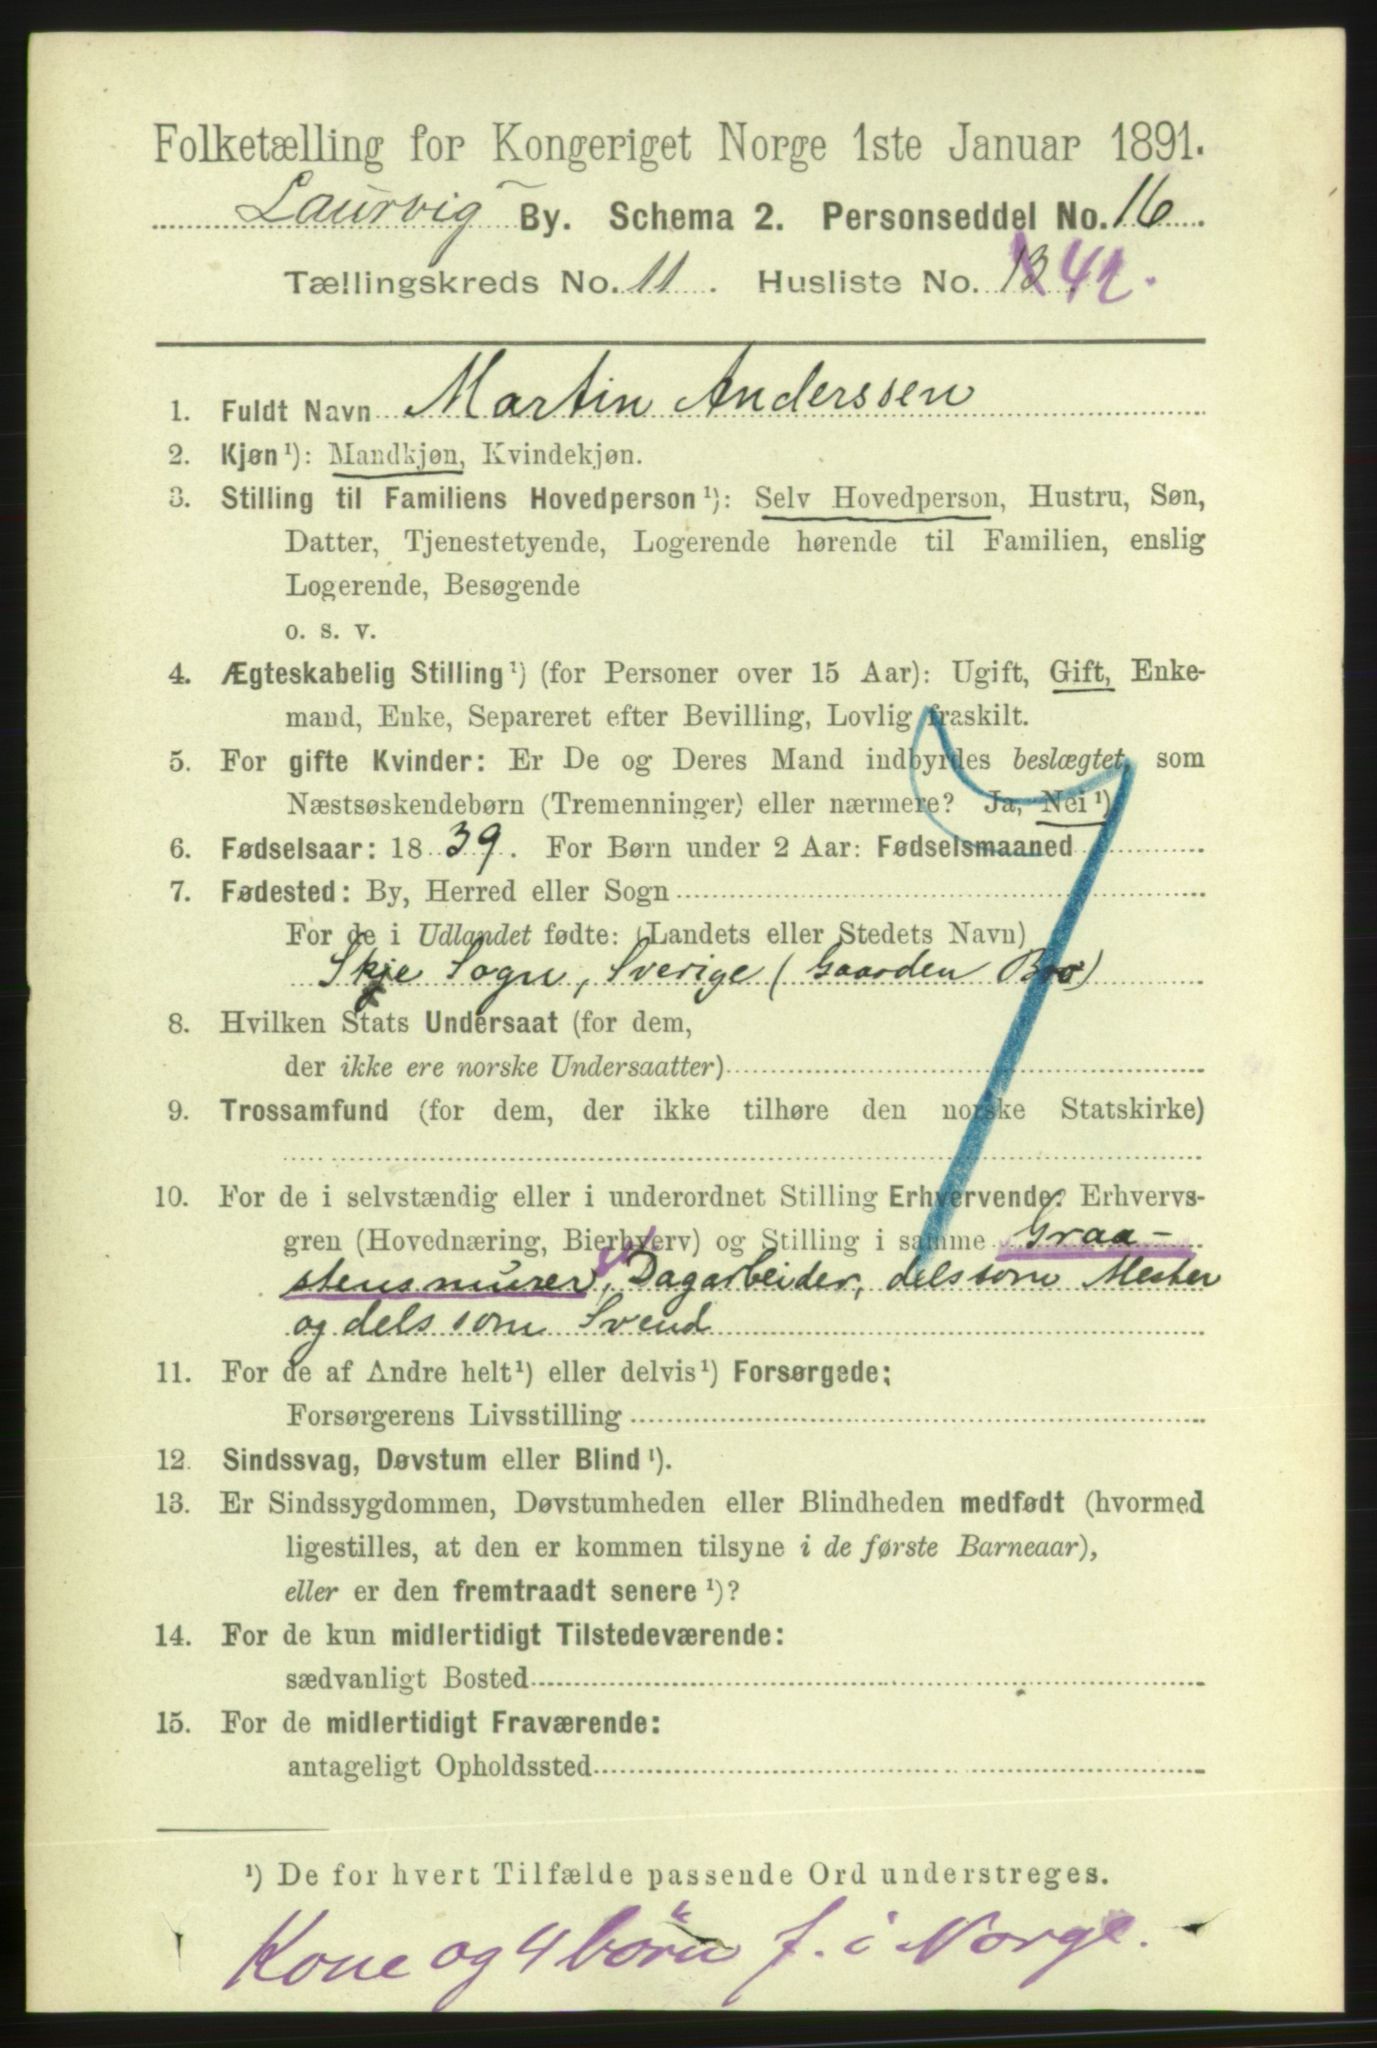 Folketælling for Kongeriget Norge 1ste Januar 1891.
Laurvig By. Schema 2. Personseddel No. 16.
Tællingskreds No. 11. Husliste No. 13 42.
1. Fuldt Navn Martin Anderssen
2. Kjøn ¹): Mandkjøn, Kvindekjøn.
3. Stilling til Familiens Hovedperson ¹): Selv Hovedperson, Hustru, Søn,
Datter, Tjenestetyende, Logerende hørende til Familien, enslig
Logerende, Besøgende
o. s. v.
4. Ægteskabelig Stilling ¹) (for Personer over 15 Aar): Ugift, Gift, Enke-
mand, Enke, Separeret efter Bevilling, Lovlig fraskilt.
5. For gifte Kvinder: Er De og Deres Mand indbyrdes beslægtet, som
Næstsøskendebørn (Tremenninger) eller nærmere? Ja, Nei ¹)
6. Fødselsaar: 1839. For Børn under 2 Aar: Fødselsmaaned
7. Fødested: By, Herred eller Sogn
For de i Udlandet fødte: (Landets eller Stedets Navn)
Skje Sogn, Sverige (Gaarden Bro)
8. Hvilken Stats Undersaat (for dem,
der ikke ere norske Undersaatter)
9. Trossamfund (for dem, der ikke tilhøre den norske Statskirke)
10. For de i selvstændig eller i underordnet Stilling Erhvervende: Erhvervs-
gren (Hovednæring, Bierhverv) og Stilling i samme Graa-
stensmurer, Dagarbeider, dels som Mester
og dels som Svend
11. For de af Andre helt ¹) eller delvis ¹) Forsørgede;
Forsørgerens Livsstilling
12. Sindssvag, Døvstum eller Blind ¹).
13. Er Sindssygdommen, Døvstumheden eller Blindheden medfødt (hvormed
ligestilles, at den er kommen tilsyne i de første Barneaar),
eller er den fremtraadt senere ¹)?
14. For de kun midlertidigt Tilstedeværende:
sædvanligt Bosted
15. For de midlertidigt Fraværende:
antageligt Opholdssted
¹) De for hvert Tilfælde passende Ord understreges.
Kone og 4 børn f. i Norge.